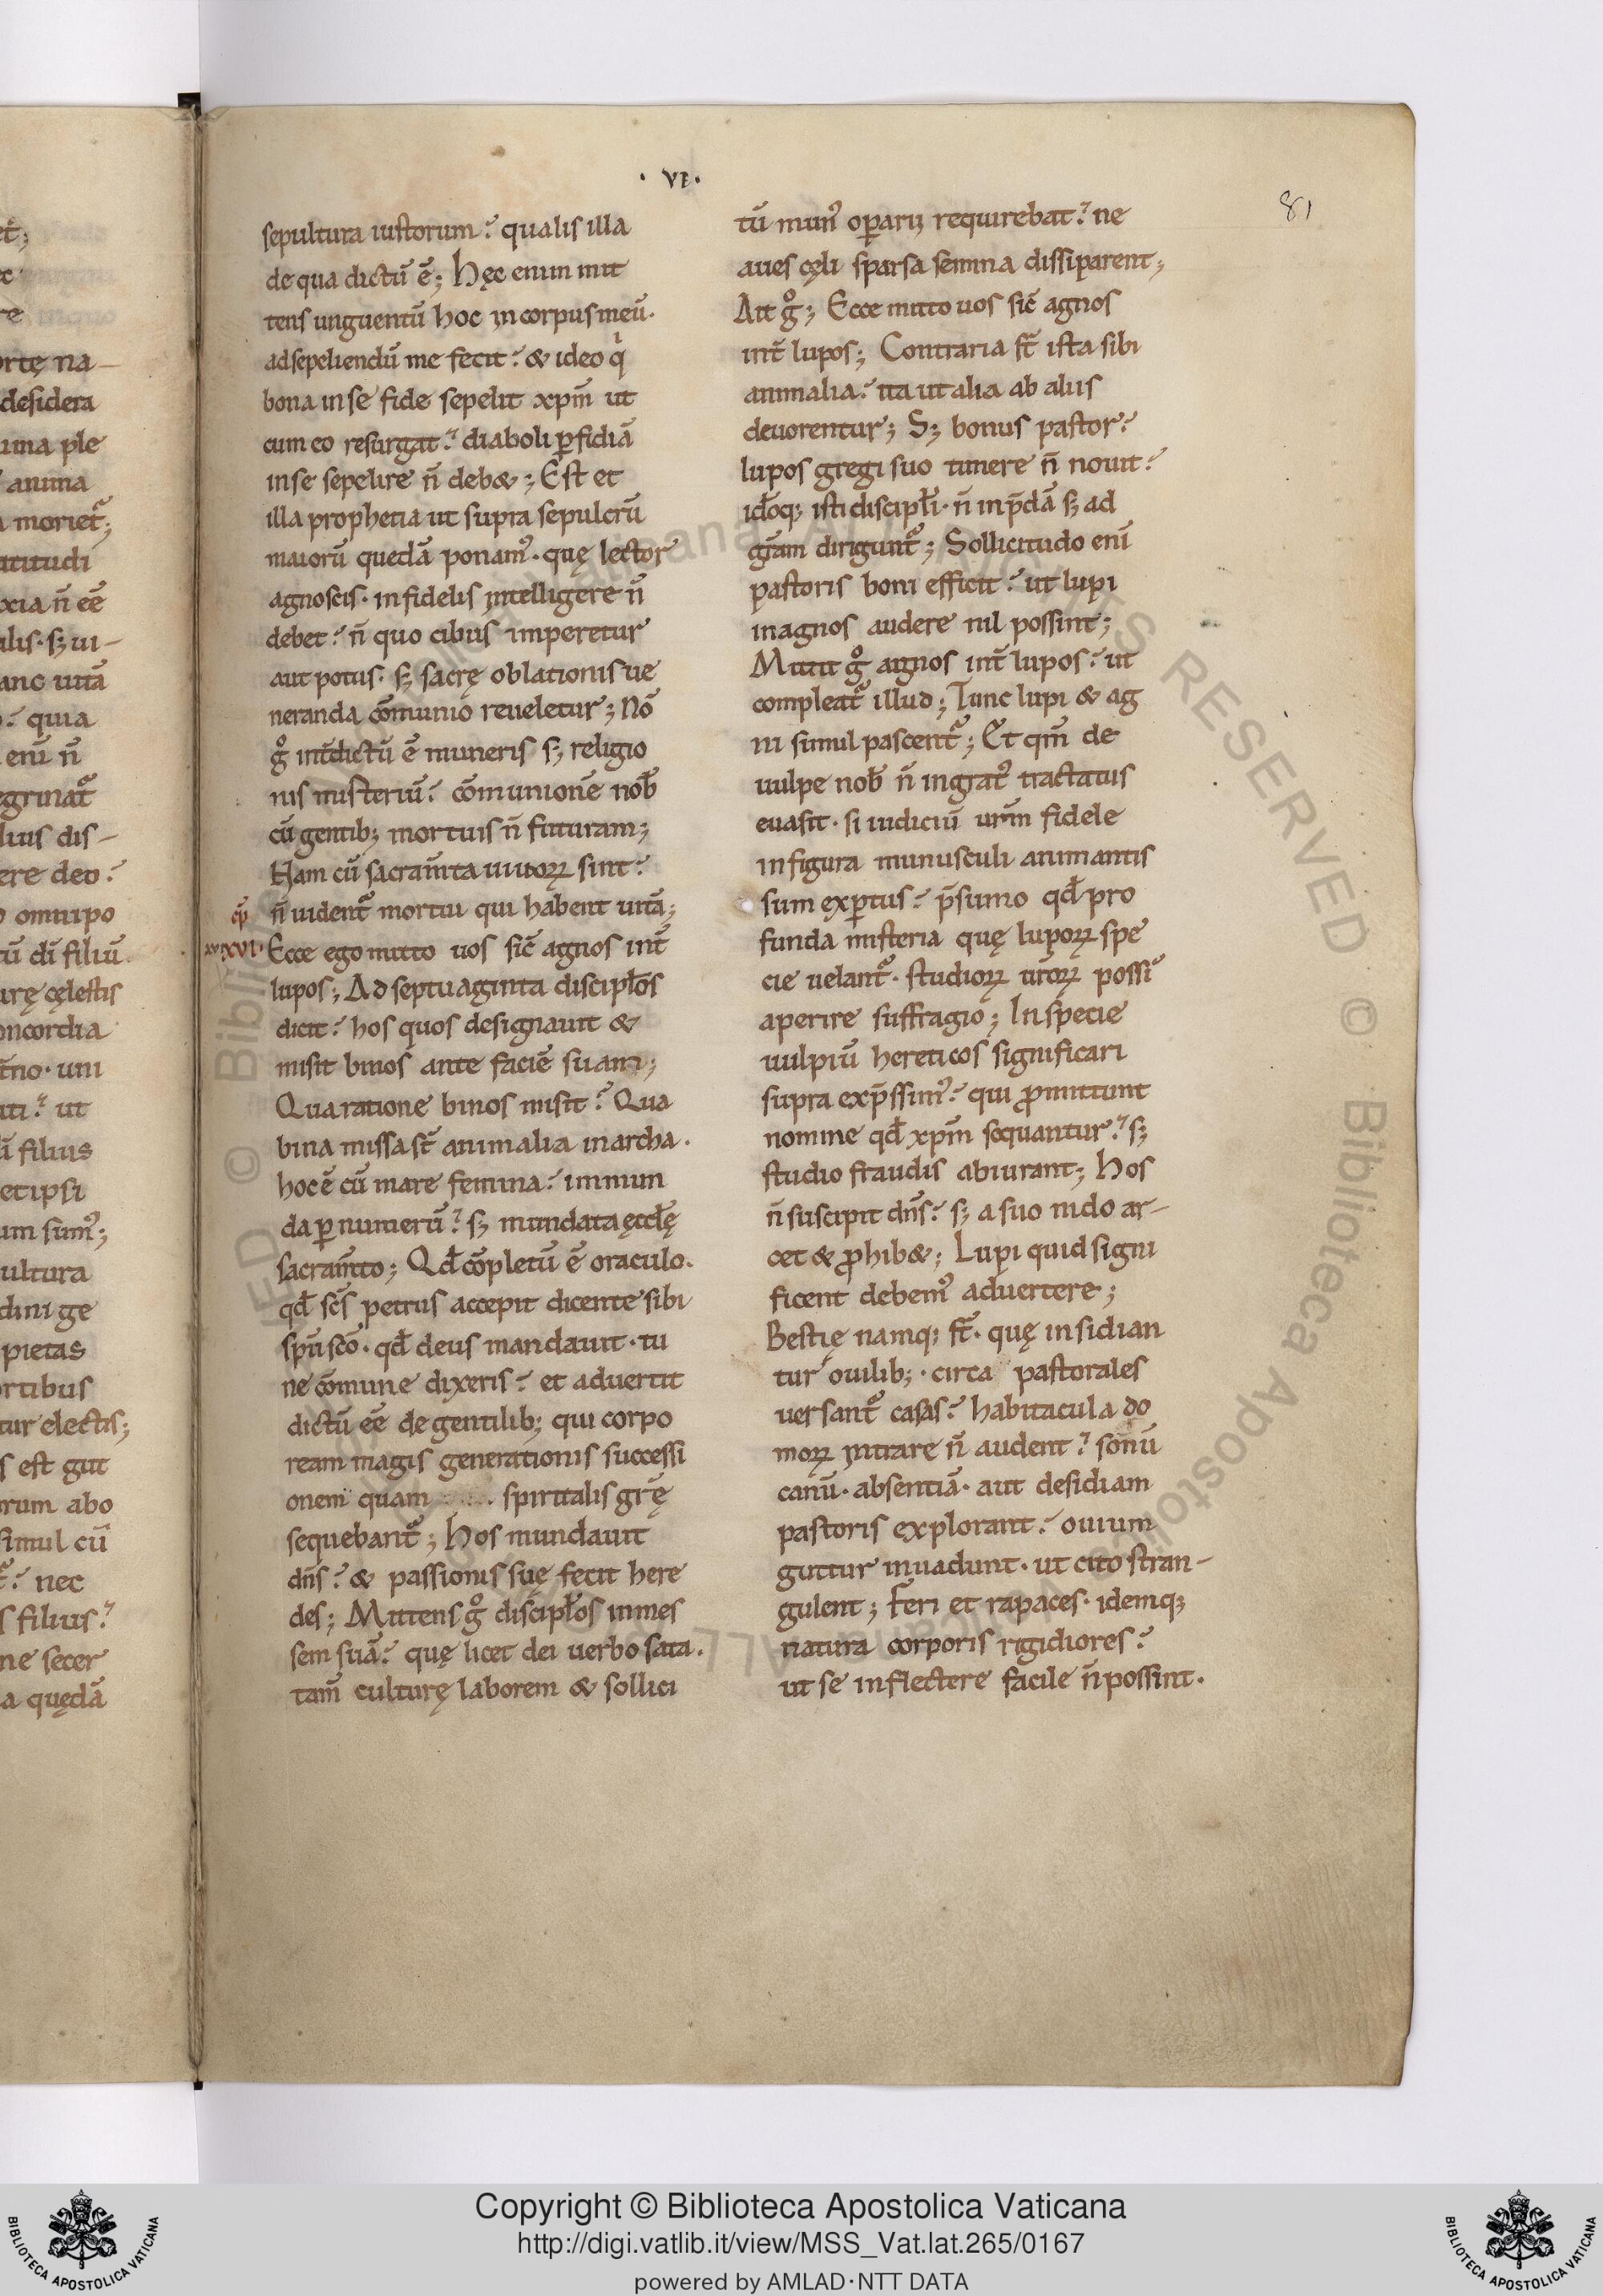 · vi ·
81
sepultura iustorum? qualis illa
de qua dictū ē; Hęc enim mit
tens unguentū hoc in corpus meū·
ad sepeliendū me fecit? & ideo q̇
bona in se fide sepelit xp̄m ut
cum eo resurgat? diaboli ꝑfidiā
in se sepelire n̄ deb&; Est et
illa prophetia ut supra sepulcrū
maiorū quedā ponam᾿· quę lector
agnoscis· infidelis intelligere n̄
debet? n̄ quo cibus imperetur
aut potus· s; sacrę oblationis ue
neranda cōmunio reueletur; Nō
g̊ int̄dictū ē muneris s; religio
nis misteriū? cōmunionē nob̄
cū gentib; mortuis n̄ futuram;
Nam cū sacram̄ta uiuoꝝ sint?
n̄ uident᾿ mortui qui habent uitā;
cp̄
xxvi· Ecce ego mitto uos sic̄ agnos int̄
lupos; Ad septuaginta discipłos
dicit? hos quos designauit &
misit binos ante faciē suam;
Qua ratione binos misit? Qua
bina missa st̄ animalia in archa·
hoc ē cū mare femina? inmun
da ꝑ numerū? s; mundata ęccłę
sacram̄to; Qđ cōpletū ē oraculo·
qđ sc̄s petrus accepit dicente sibi
spū scō· qđ deus mandauit· tu
ne cōmune dixeris? et aduertit
dictū eē de gentilib; qui corpo
ream magis generationis successi
onem quam spiritalis gr̄ę
sequebant᾿; Hos mundauit
dn̄s? & passionis suę fecit here
des; Mittens g̊ discipłos in mes
sem suā? quę licet dei uerbo sata·
tam̄ culturę laborem & sollici
tū mun᾿ oꝑarij requirebat? ne
aues cęli sparsa semina dissiparent;
Ait g̊; Ecce mitto uos sic̄ agnos
int̄ lupos; Contraria st̄ ista sibi
animalia? ita ut alia ab aliis
deuorentur; S; bonus pastor?
lupos gregi suo timere n̄ nouit?
iđoq; isti discipłi· n̄ in p̄dā s; ad
gr̄am dirigunt᾿; Sollicitudo eni̅
pastoris boni efficit? ut lupi
in agnos audere nil possint;
Mittit g̊ agnos int̄ lupos? ut
compleat᾿ illud; Tunc lupi & ag
ni simul pascent᾿; Et qm̄ de
uulpe nob̄ n̄ ingrat᾿ tractatus
euasit· si iudiciū ur̄m fidele
in figura munusculi animantis
sum exꝑtus? p̄sumo qđ pro
funda misteria quę lupoꝝ spe
cie uelant᾿· studioꝝ ur̄oꝝ possi᾿
aperire suffragio; In specie
uulpiū hereticos significari
supra exp̄ssim᾿? qui ꝓmittunt
nomine qđ xp̄m sequantur? s;
studio fraudis abiurant; Hos
n̄ suscipit dn̄s? s; a suo nido ar-
cet & ꝓhib&; Lupi quid signi
ficent debem᾿ aduertere;
Bestię namq; st̄· quę insidian
tur ouilib;· circa pastorales
uersant᾿ casas? habitacula do
moꝝ intrare n̄ audent? sonū
canū· absentiā· aut desidiam
pastoris explorant? ouium
guttur inuadunt· ut cito stran-
gulent; Feri et rapaces· idemq;
natura corporis rigidiores?
ut se inflectere facile n̄ possint·
Copyright © Biblioteca Apostolica Vaticana
http://digi.vatlib.it/view/MSS_Vat.lat.265/0167
powered by AMLAD·NTT DATA